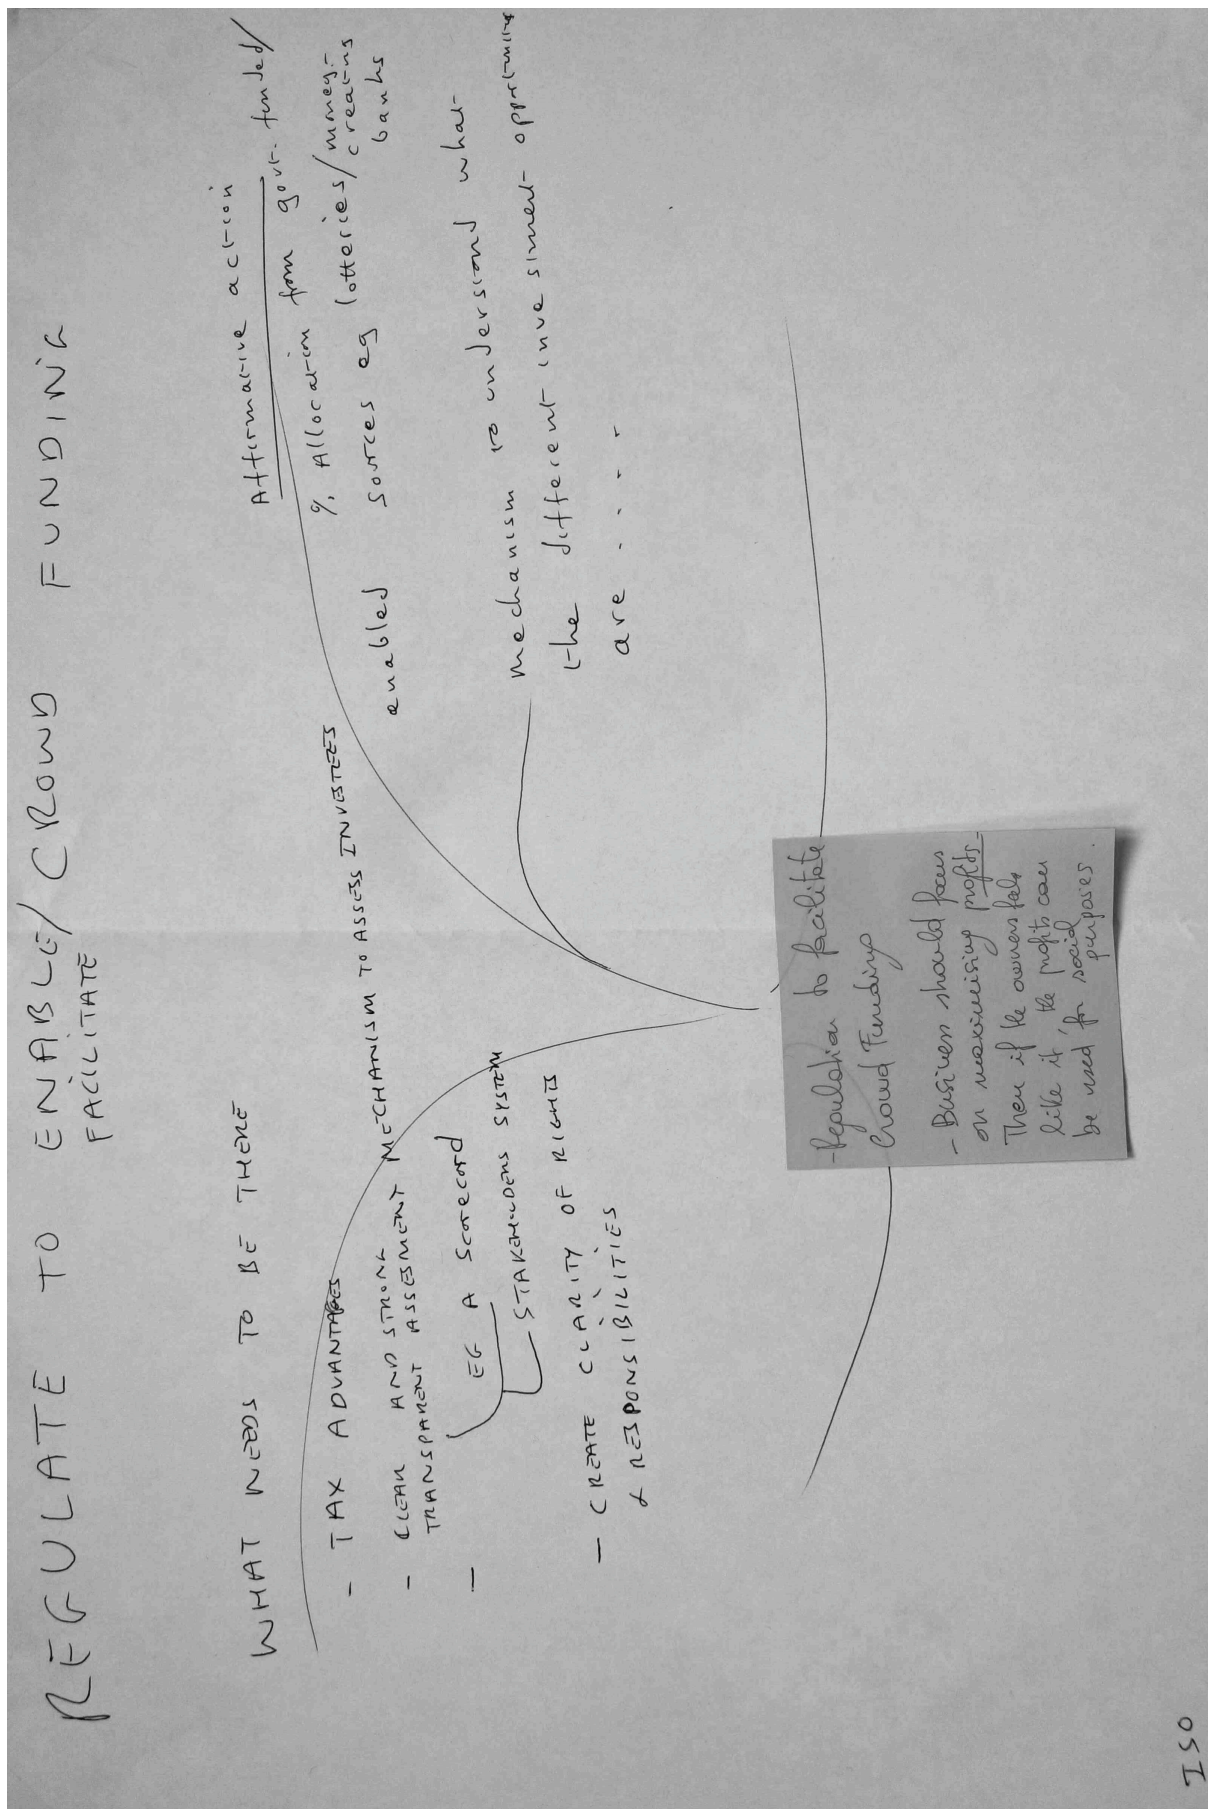 REGULATE TO ENABLE/ CROWD FUNDING
FACILITATE
WHAT NEEDS TO BE THERE
- TAX ADVANTAGES
- CLEAR AND STRONG
TRANSPARENT ASSESMENT MECHANISM TO ASSESS INVESTEES
- EG A Scorecord
STAKEHOLDERS SYSTEM
- CREATE CLARITY OF RIGHTS
& RESPONSIBILITIES
Affirmative action
% Allocation from govt. funded/
enabled sources eg lotteries/money-
creating
banks
mechanism to understand what
the different investment opportunities
are .....
- Regulation to facilitate
Crowd Funding
- Business should focus
on maximising profits.
Then if the owners feel
like it, the profits can
be used for social
purposes.
ISO